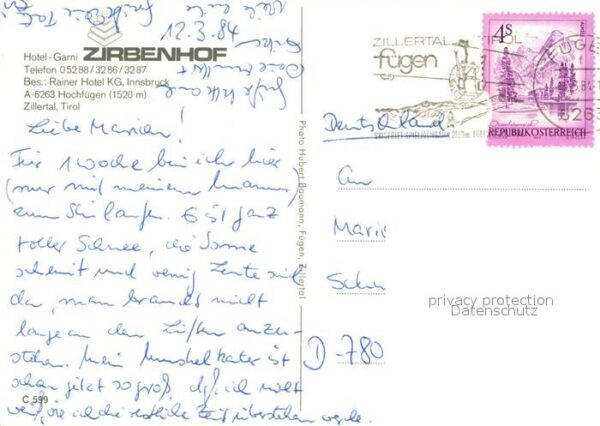 12.3.84
Hotel-Garni ZIRBENHOF
Telefon 05288/3286/3287
Bes.: Rainer Hotel KG, Innsbruck
A-6263 Hochfügen (1520 m)
Zillertal, Tirol
Liebe Marion!
Für 1 Woche bin ich hier
(nur mit meinem Mann)
zum Skilaufen. Es ist ganz
toller Schnee, die Sonne
scheint und wenig Leute sind
da, man braucht nicht
lange an den Liften anzu-
stehen. Mein Muskelkater ist
schon jetzt so groß, daß ich nicht
weiß, wie ich die restliche Zeit überstehen werde.
C 599
Photo Hubert Baumann, Fügen, Zillertal
ZILLERTAL TIROL
fügen
4S
REPUBLIK ÖSTERREICH
Deutschland
An
Marie
D-780
privacy protection
Datenschutz